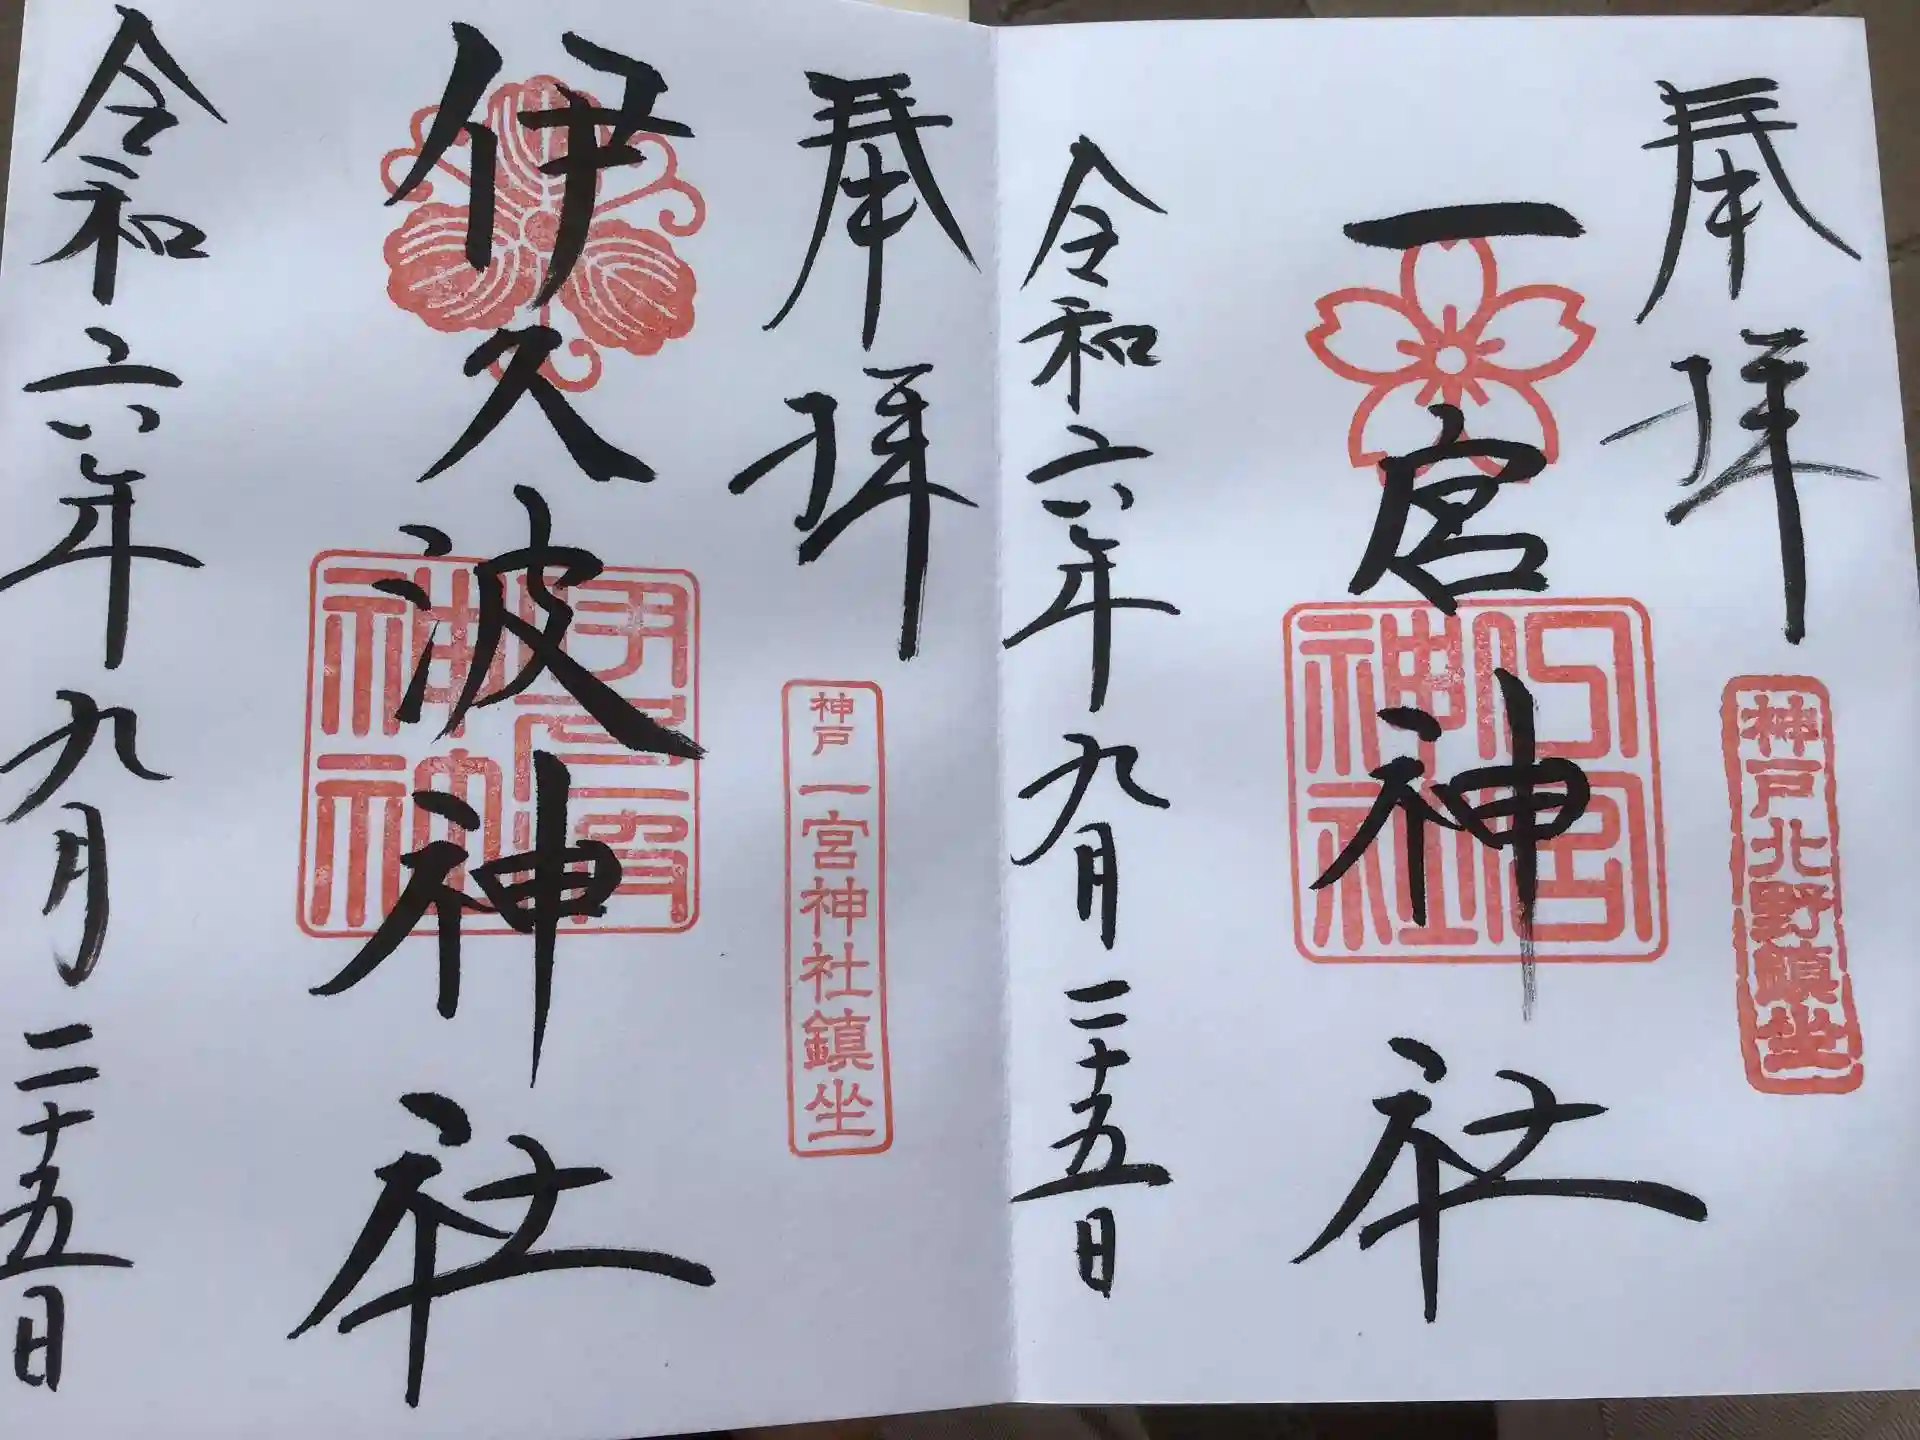 奉拝
神戸北野鎮坐
一宮神社
一宮神社
令和六年九月二十五日
奉拝
神戸一宮神社鎮坐
伊久波神社
令和六年九月二十五日